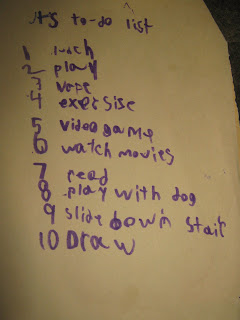 it's to-do list
1 lunch
2 play
3
4 exersise
5 video game
6 watch movies
7 read
8 play with dog
9 slide down stair
10 Draw